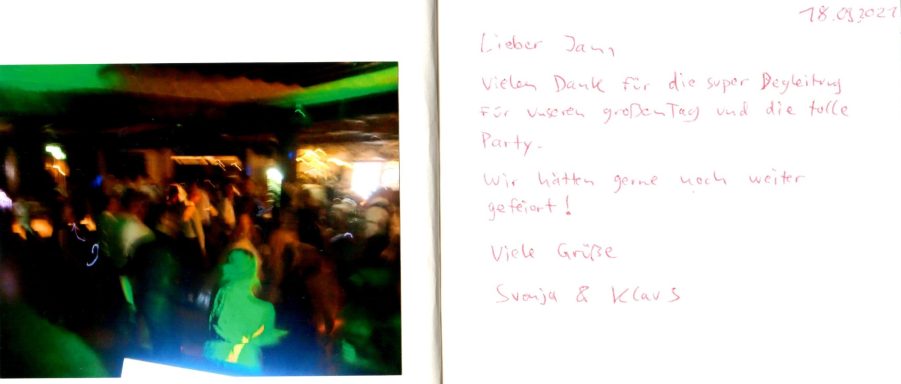 18.09.2021
Lieber Jann,
Vielen Dank für die super Begleitung
für unseren großen Tag und die tolle
Party.
Wir hätten gerne noch weiter
gefeiert!
Viele Grüße
Svenja & Klaus